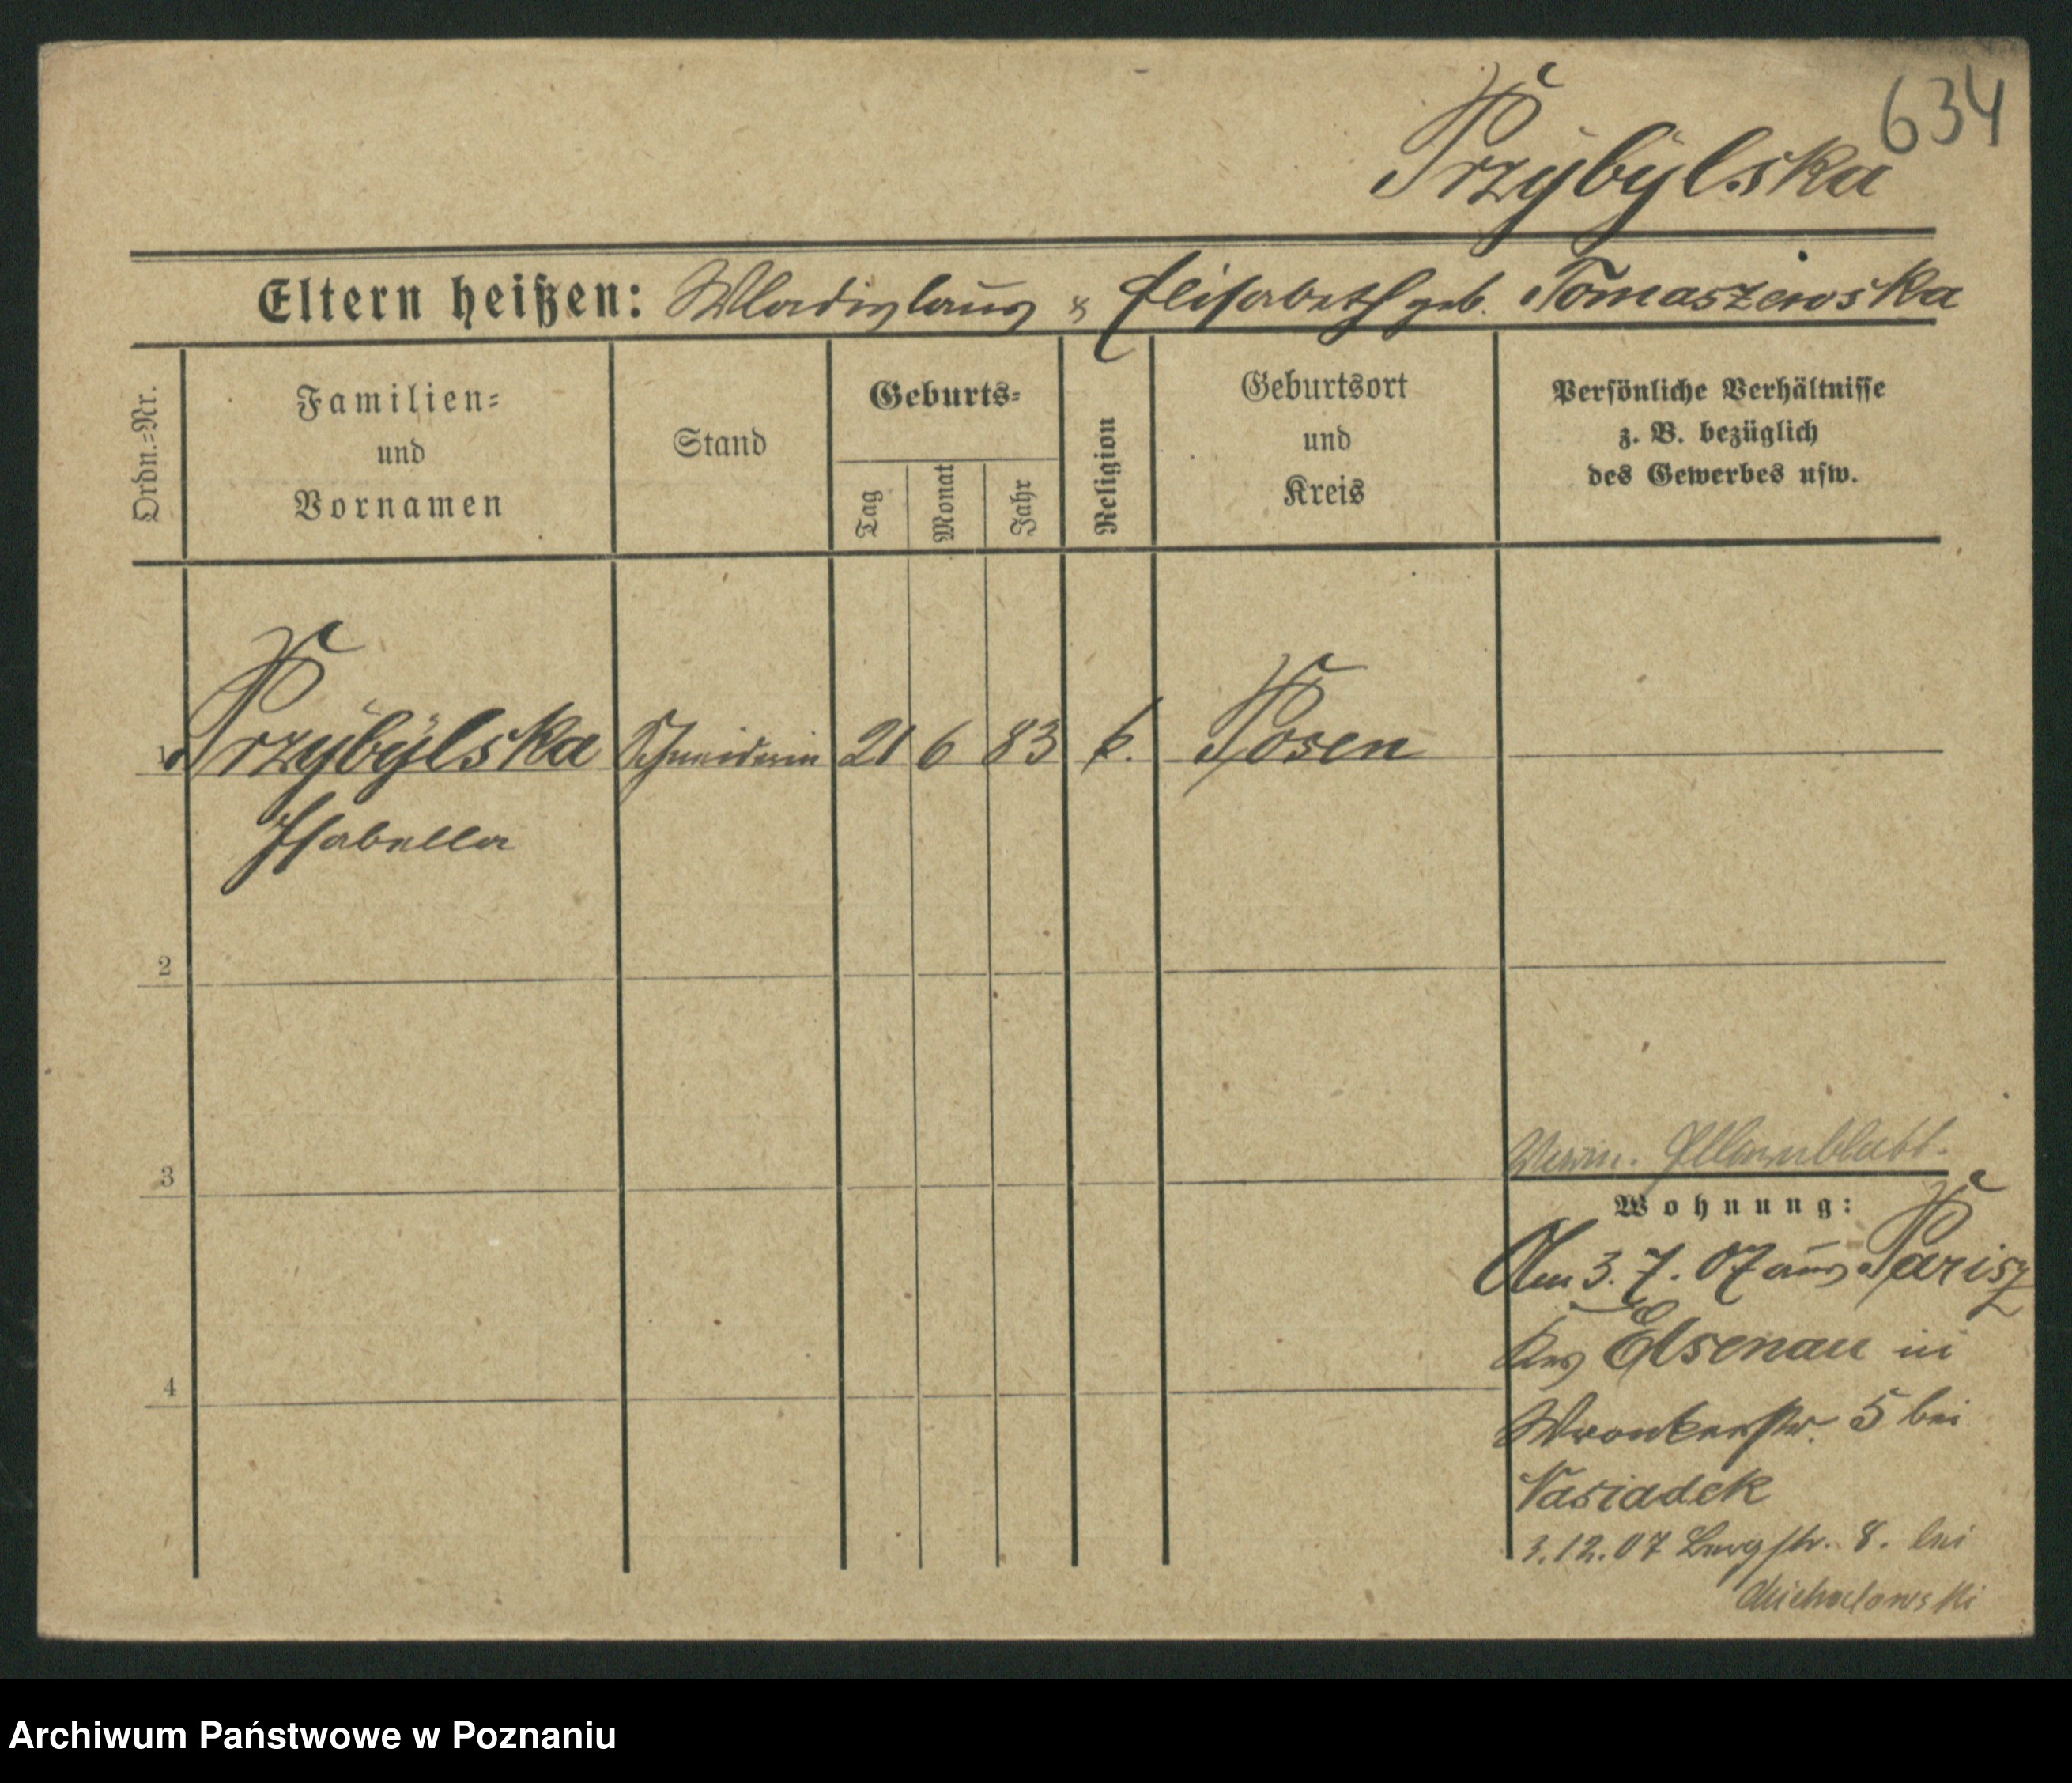 634
Przÿbÿlska
Eltern heißen: Wladislaus & Elisabeth geb. Tomaszewska
Ordn.=Nr.
Familien=
und
Vornamen
Stand
Geburts=
Tag
Monat
Jahr
Religion
Geburtsort
und
Kreis
Persönliche Verhältnisse
z. B. bezüglich
des Gewerbes usw.
1 Przÿbÿlska Schneiderin 21 6 83 k. Posen
Isabella
2
3
4
Wohnung:
Am 3. 7. 07 aus Parisz
Elsenau in
Wronkerstr. 5 bei
Vasiadek
3.12.07 Burgstr. 8. bei
Michalowski
Archiwum Państwowe w Poznaniu